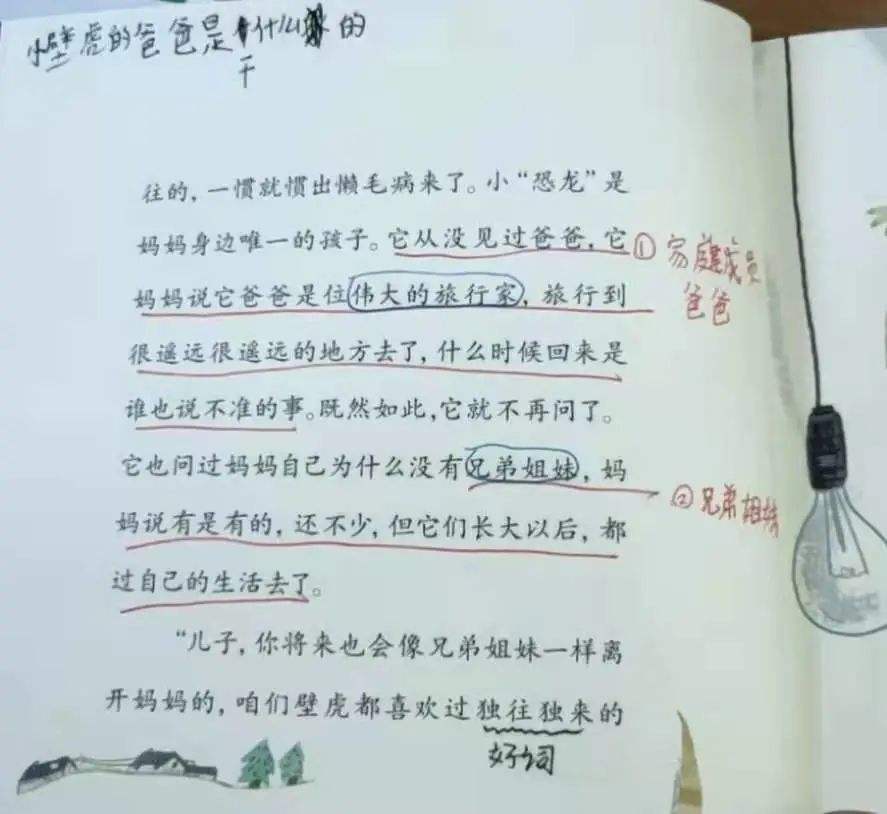 小壁虎的爸爸是干什么的
往的，一惯就惯出懒毛病来了。小“恐龙”是
妈妈身边唯一的孩子。它从没见过爸爸，它
①家庭成员
妈妈说它爸爸是位伟大的旅行家，旅行到
爸爸
很遥远很遥远的地方去了，什么时候回来是
谁也说不准的事。既然如此，它就不再问了。
它也问过妈妈自己为什么没有兄弟姐妹，妈
②兄弟姐妹
妈说有是有的，还不少，但它们长大以后，都
过自己的生活去了。
“儿子，你将来也会像兄弟姐妹一样离
开妈妈的，咱们壁虎都喜欢过独往独来的
好词